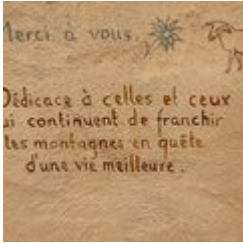 Merci à vous,
Dédicace à celles et ceux
qui continuent de franchir
les montagnes en quête
d'une vie meilleure.